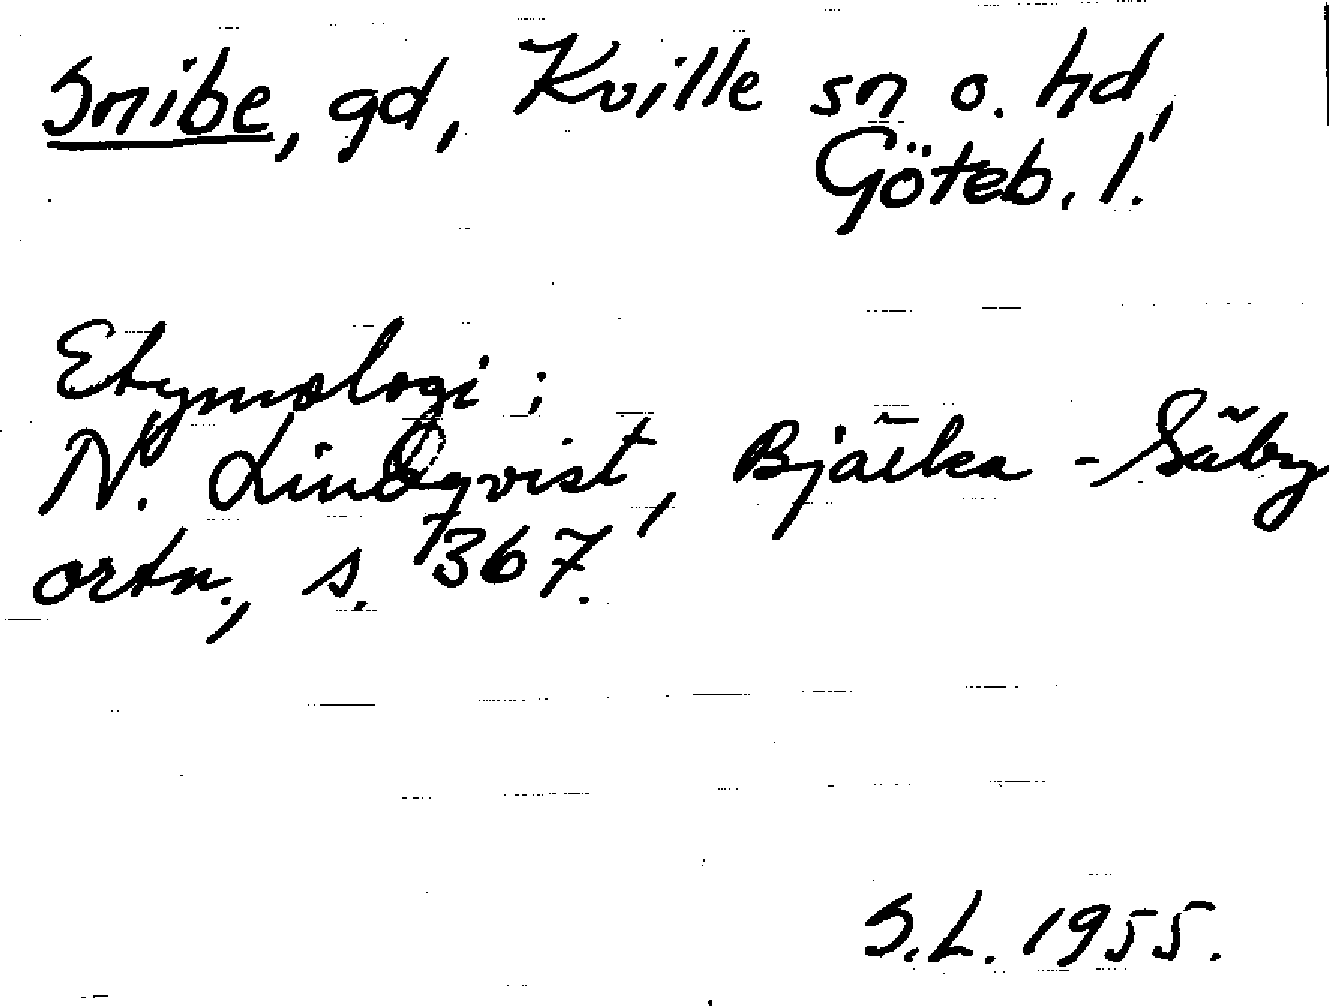 Snibe, gd, Kville sn o. hd,
Göteb. l.
Etymologi;
N. Lindqvist, Bjälka-Säby
ortn., s. 367.
S.L. 1955.